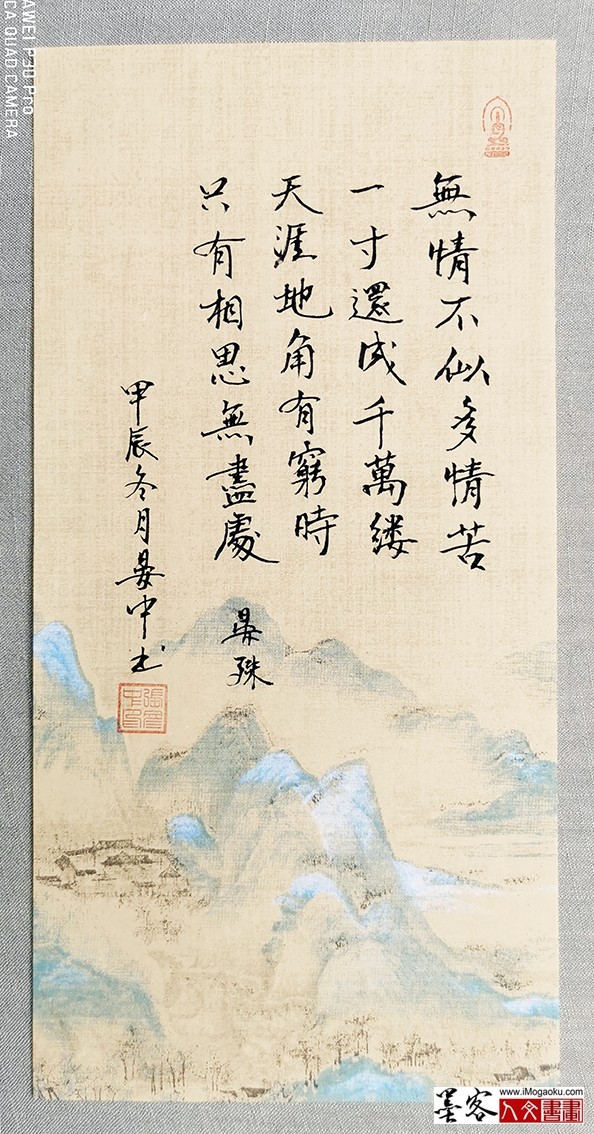 無情不似多情苦
一寸還成千萬缕
天涯地角有窮時
只有相思無盡處
晏殊
甲辰冬月晏中书
AWEI P30 Pro
CA QUAD CAMERA
墨客
www.iMogaoku.com
人文書畫